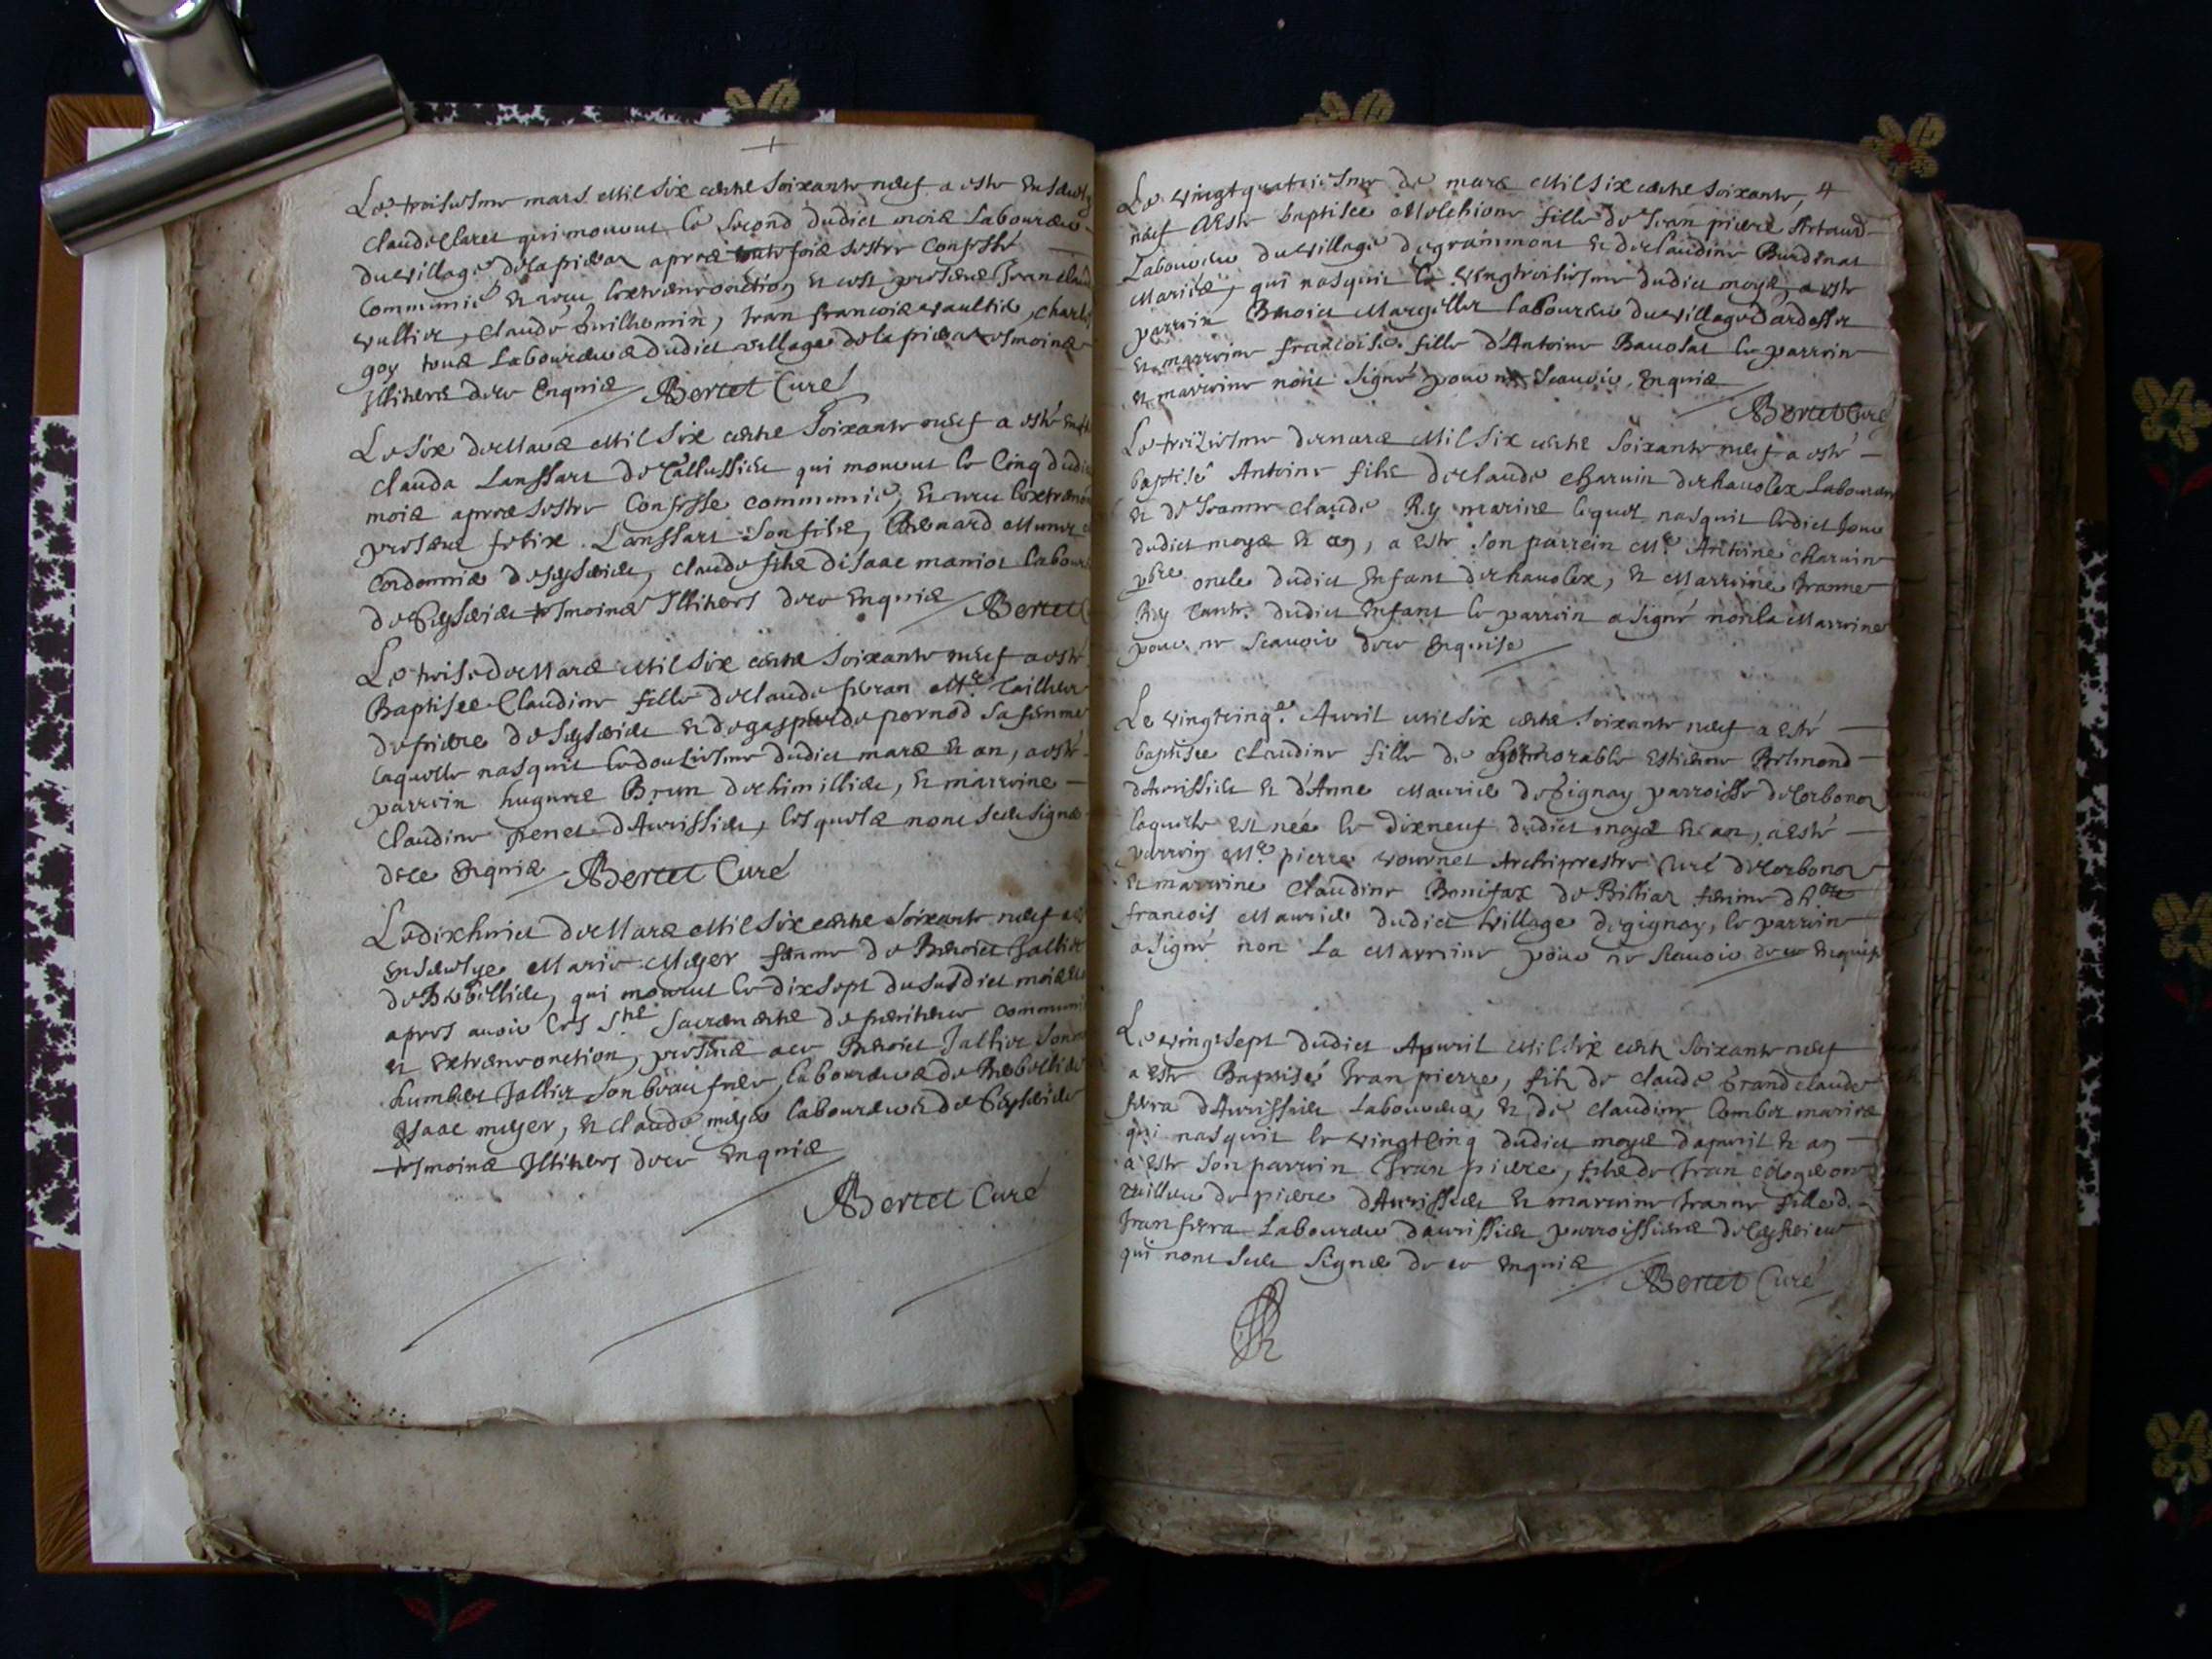 Le troisiesme mars mil six cents soixante neuf a esté
Claude Claret qui mourut le second dudict mois laboureur
du village de lapierar apres toutefois sestre confessé
communié et receu lextremeonction et ce es presences Jean
vullier, Claude Guilhemin, Jean francois vaultier, charles
goy tous laboureurs dudict village de lapierar tesmoins
Illiteres de ce enquis Bertet Curé
Le six de Mars mil six cents soixante neuf a esté
Clauda Lanssart de qui mourut le cinq dudict
mois apres sestre confesse communié, et receu lextreme
presens felix Lanssart son fils, Bernard
Cordonnier de Seyserieu, Claude fils disaac maniot
de Ceyserieu tesmoins Illiteres de ce enquis Bertet
Le treise de Mars mil six cents soixante neuf a esté
Baptisee Claudine fille de Claude feran Mre Tailheur
de pierre de Seyserieu et de gasparde pernod sa femme
laquelle nasquit le dousiesme dudict mars et an, a esté
parrein hugues Brun de himillieu, et marreine
Claudine penet d'Avrissieu, lesquels nont sceu signer
de ce enquis Bertet Curé
Le dixhuict de Mars mil six cents soixante neuf
ensevelye Marie Meyer femme de Benoict Jallier
de, qui mourut le dixsept du susdict mois
apres avoir les Sts Sacrements de penitence
et extremeonction, presens ace Benoict Jallier
humbert Jallier son beau frere, laboureurs de
Isaac meyer, et Claude meyer laboureurs de Ceyserieu
tesmoins Illiteres de ce enquis
Bertet Curé
Le vingtquatriesme de mars mil six cents soixante, 4
neuf a esté baptisee Melchione fille de Jean pierre Artaud
Laboureur du village de grammont et de Claudine Burdinat
Mariés, qui nasquit le vingtroisiesme dudict moys, a esté
parrein Benoict Margillet laboureur du village dardosset
et marreine francoise fille d'Antoine Bavosat le parrein
et marreine nont signé pour ne scavoir, enquis
Bertet Curé
Le treiziesme de mars mil six cents soixante neuf a esté
baptisé Antoine fils de Claude Charvin de chavolex Laboureur
et de Jeanne Claude Rey mariés lequel nasquit ledict jour
dudict moys et an, a esté son parrein Mre Antoine Charvin
pbre oncle dudict enfant de chavolex, et Marreine Jeanne
Rey tante dudict enfant le parrein a signé non la Marreine
pour ne scavoir de ce enquise
Le vingtcinqe Avril mil six cents soixante neuf a esté
baptisee Claudine fille de honnorable Estienne Belmond
d'Avrissieu et d'Anne Maurier de gignay parroisse de Corbonod
laquelle est née le dixneuf dudict moys et an, a esté
parrein Mre pierre vournet Archiprestre Curé de Corbonod
et marreine Claudine Bonifax de Billiat femme dhble
francois Maurier dudict village de gignay, le parrein
a signé non la Marreine pour ne scavoir de ce enquise
Le vingtsept dudict Apvril mil six cents soixante neuf
a esté Baptisé Jean pierre, fils de Claude grand claude
ferra d'Avrissieu laboureur, et de Claudine Combet mariés
qui nasquit le vingtcinq dudict moys dapvril et an
a esté son parrein Jean pierre, fils de Jean
tailleur de pierre d'Avrissieu et marreine Jeanne fille de
Jean ferra Laboureur davrissieu parroissiens de Ceyserieu
qui nont sceu signer de ce enquis
Bertet Curé